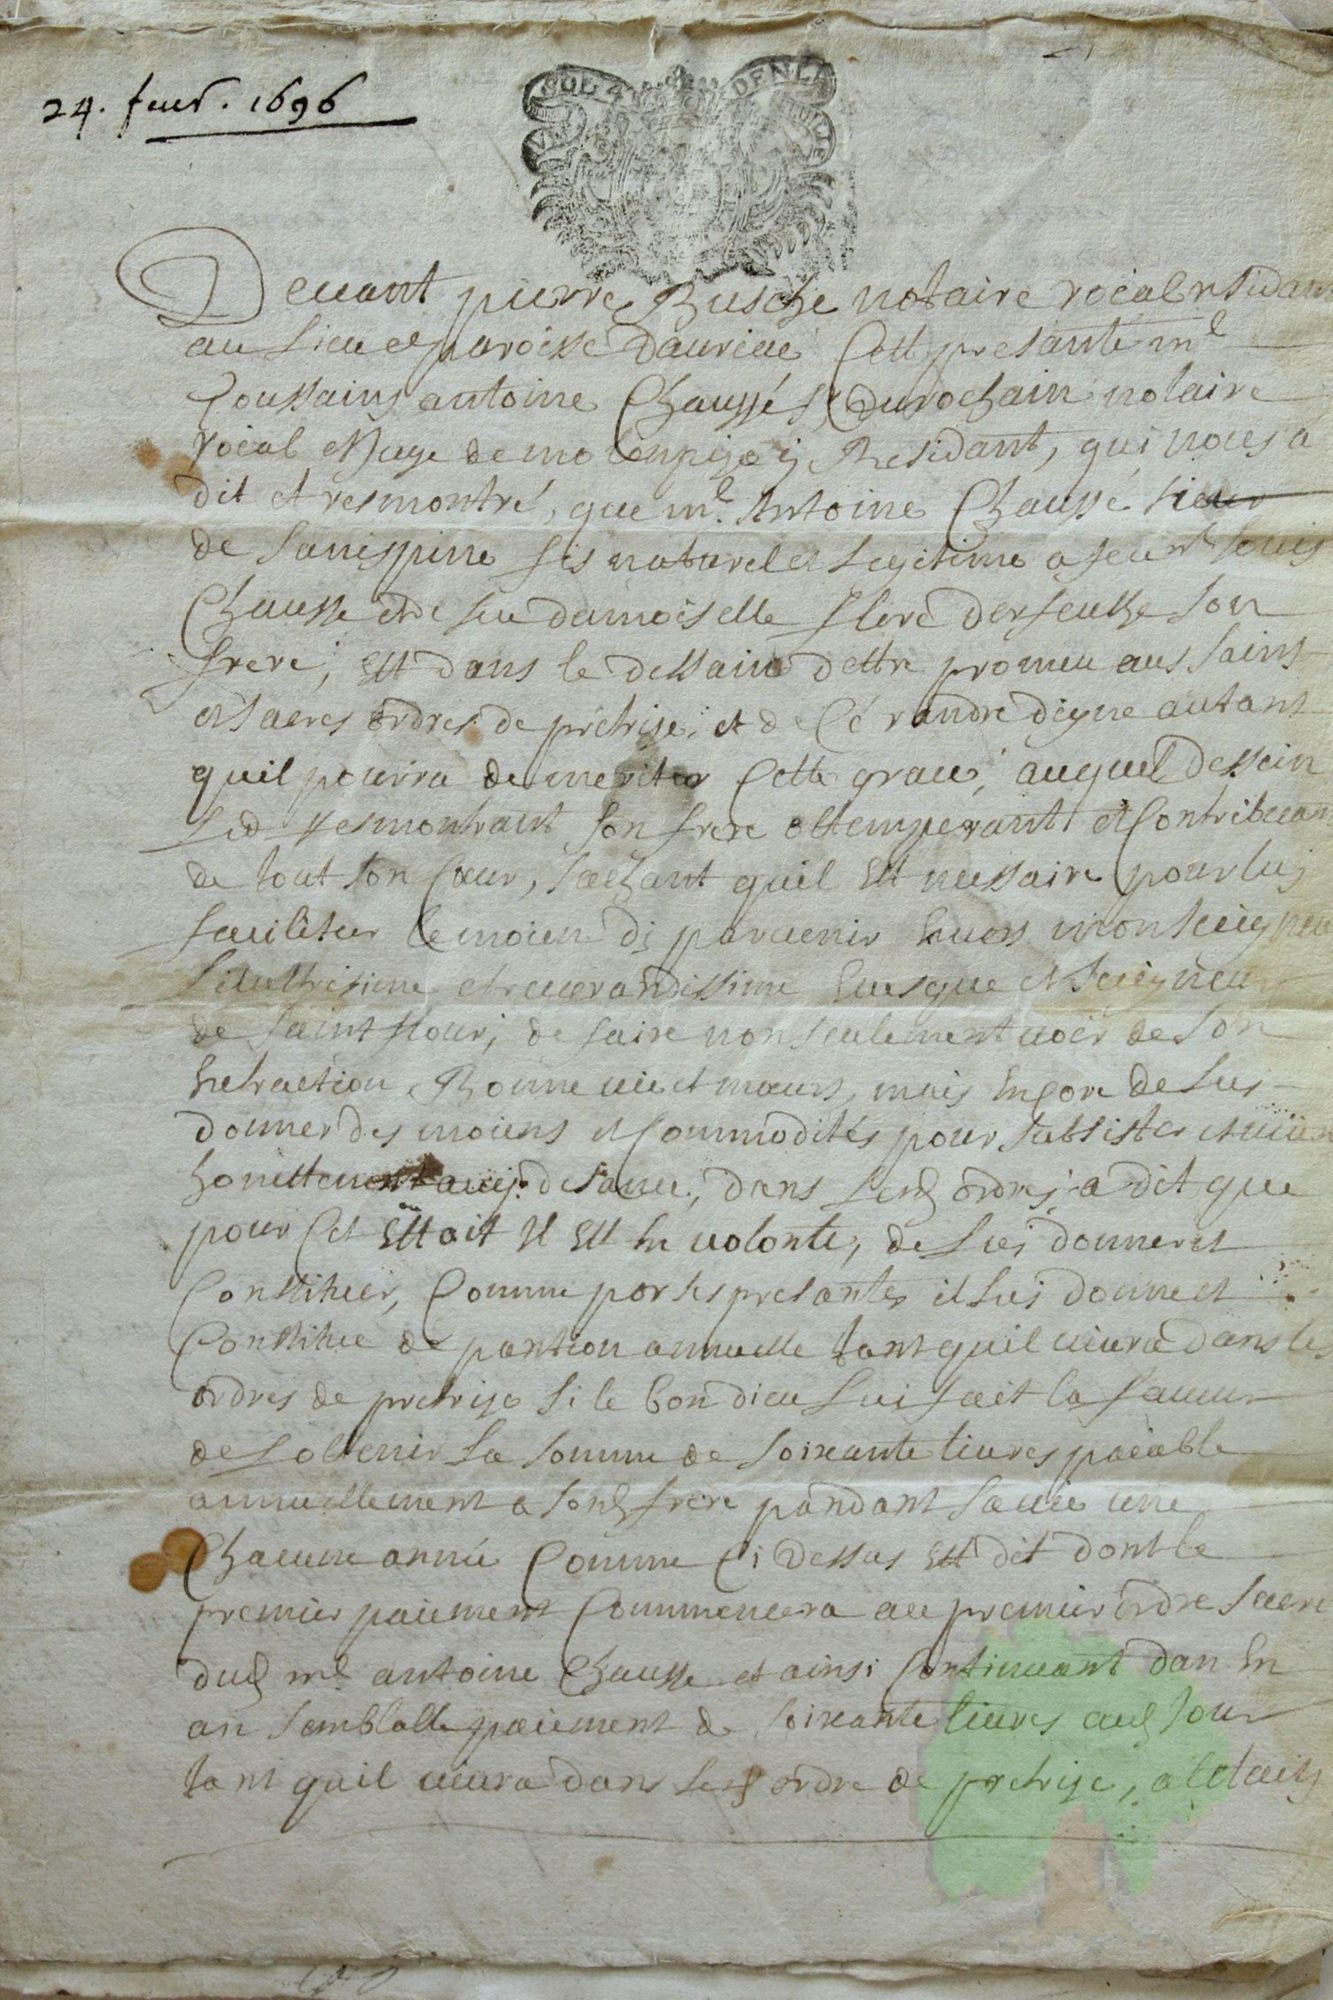 24. feur. 1696
SOL 4 DENI
Devant pierre Rusche notaire roial residant
au Lieu et paroisse dauriac Cett presanté m.e
Toussains antoine Chaussé Sr durochain notaire
roial et Juge de mo y Residant, qui nous a
dit et resmontré, que m.e Antoine Chausse sieur
de fils naturel et legitime a feu m.e Louis
Chausse et de feu damoiselle flore son
frere, est dans le dessain dettre promeu aus sains
et sacres ordres de prêtrise, et de Cé randre digne autant
quil pourra de meriter Cette grace, auquel dessein
Led resmontrant son frere obtemperant et Contribeuant
de tout son Cœur, sachant quil est nessaire pour luj
faciliter le moien dj parvenir Envers monseigneur
Lillustrisime et reverandissime Evesque et seigneur
de saint flour, de faire non seulement voir de son
Extraction, Bonne vie et mœurs, mais Encore de Lui
donner des moiens et Commodités pour subsister et vivre
honettement sa vie, dans lesd ordres, a dit que
pour Cet Effait Il Est En volonte, de Lui donner et
Constituer, Comme par les presantes il lui donne et
Constitue de pantion annuelle tant quil vivra dans les
ordres de pretrise si le bon dieu Lui fait la faveur
de Lobtenir La somme de soixante livres paiable
annuellement a sond frere pandant sa vie une
Chacune année Comme Ci Dessus Est dit dont le
premier paiement Commencera au premier ordre sacré
dud m.e antoine Chausse et ainsi Continuant dan En
an semblable paiement de soixante livres aud Jour
tant quil vivra dans led ordre de pretrise,